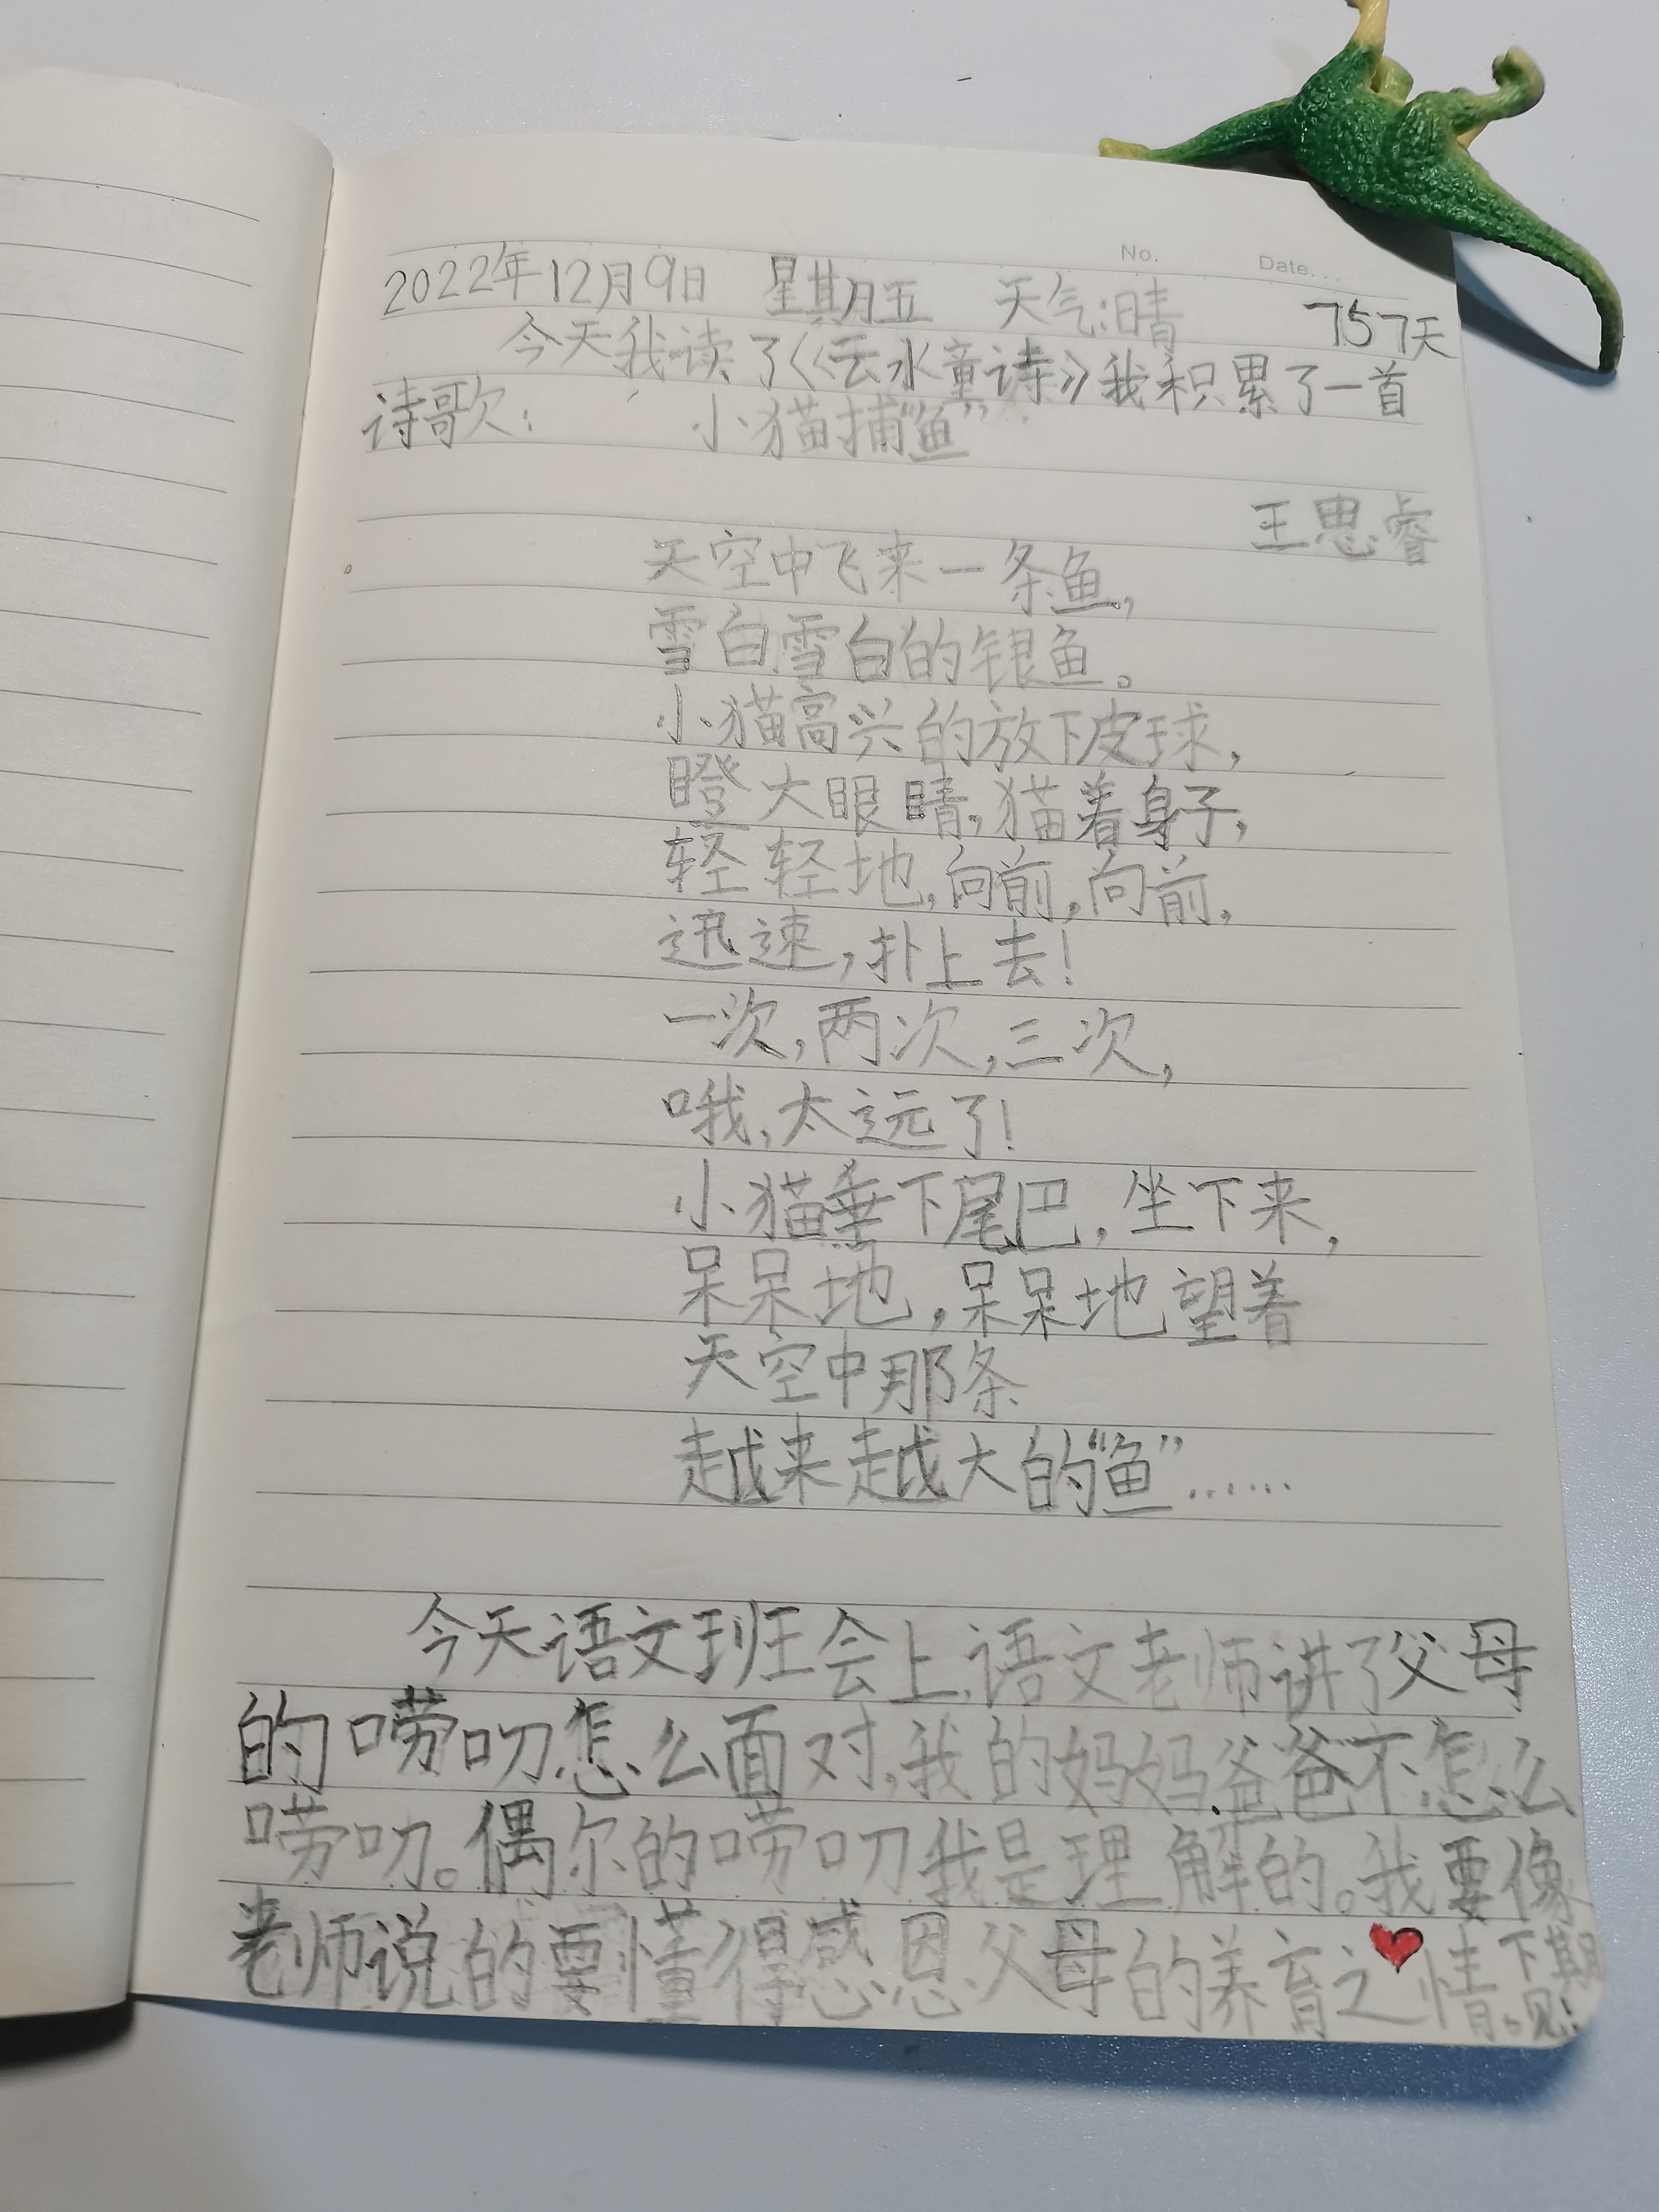 No.
Date...
2022年12月9日 星期五 天气:晴 757天
今天我读了《云水童诗》我积累了一首
诗歌: 小猫捕“鱼”
王思睿
天空中飞来一条鱼,
雪白雪白的银鱼。
小猫高兴的放下皮球,
瞪大眼睛,猫着身子,
轻轻地,向前,向前,
迅速,扑上去!
一次,两次,三次,
哦,太远了!
小猫垂下尾巴,坐下来,
呆呆地,呆呆地望着
天空中那条
越来越大的“鱼”……
今天语文班会上,语文老师讲了父母
的唠叨怎么面对,我的妈妈爸爸不怎么
唠叨。偶尔的唠叨我是理解的。我要像
老师说的要懂得感恩父母的养育之情。下期
见!